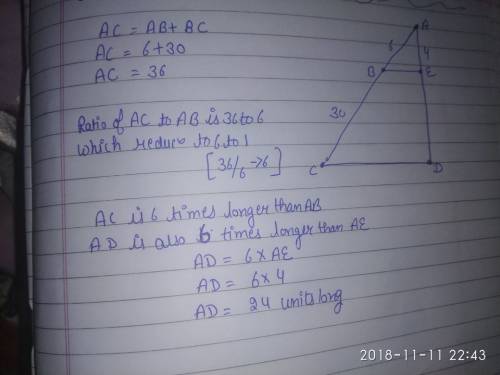 AC = AB + BC
AC = 6+30
AC = 36
Ratio of AC to AB is 36 to 6
which reduce to 6 to 1
[36/6 → 6]
AC is 6 times longer than AB
AD is also 6 times longer than AE
AD = 6 × AE
AD = 6×4
AD = 24 units long
A
6
4
B
E
30
C
D
2018-11-11 22:43